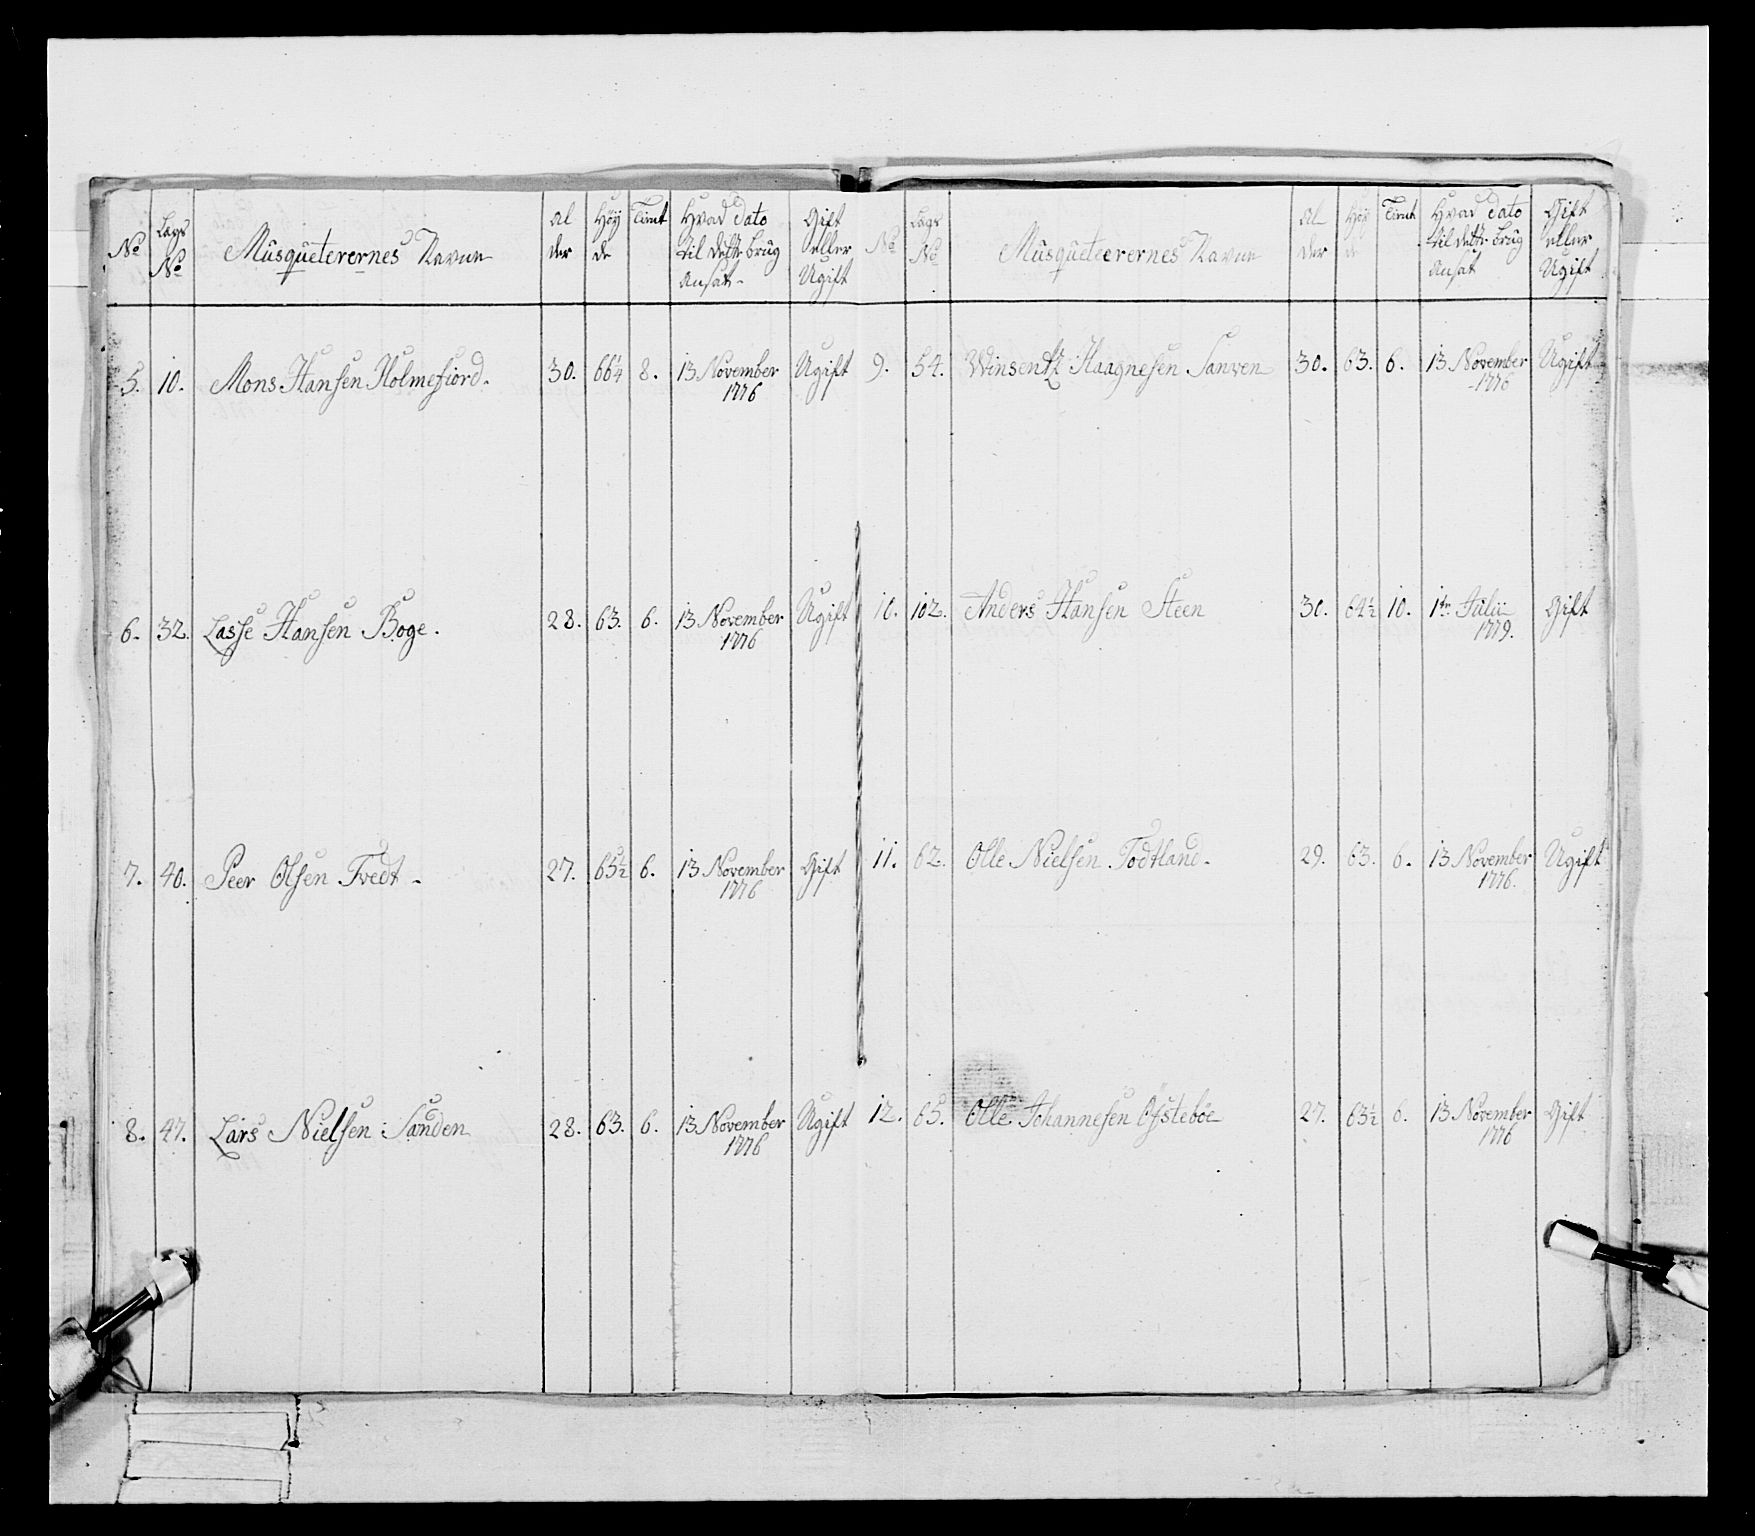 No | Lags No | Musqueterernes Navne | Al der | Höy de | Tient | Hvad Dato til dette brug Ansat | Gift eller Ugift
5. | 10. | Mons Hansen Holmefiord. | 30. | 66¼ | 8. | 13 November 1776 | Ugift
6. | 32. | Lasse Hansen Boge. | 28. | 63. | 6. | 13 November 1776 | Ugift
7. | 40. | Peer Olsen Tvedt. | 27. | 65½ | 6. | 13 November 1776 | Gift
8. | 47. | Lars Nielsen Sanden | 28. | 63. | 6. | 13 November 1776 | Ugift
No | Lags No | Musqueteerernes Navne | Al der | Höy de | Tient | Hvad Dato til dette brug Ansat | Gift eller Ugift
9. | 54. | Winsentz Haagnesen Sanven | 30. | 63. | 6. | 13 November 1776 | Ugift
10. | 102. | Anders Hansen Steen | 30. | 64½ | 10. | 1te Julii 1779. | Gift
11. | 62. | Olle Nielsen Todtland. | 29. | 63. | 6. | 13 November 1776. | Ugift
12. | 65. | Olle Johannesen Østeböe | 27. | 63½ | 6. | 13 November 1776 | Gift